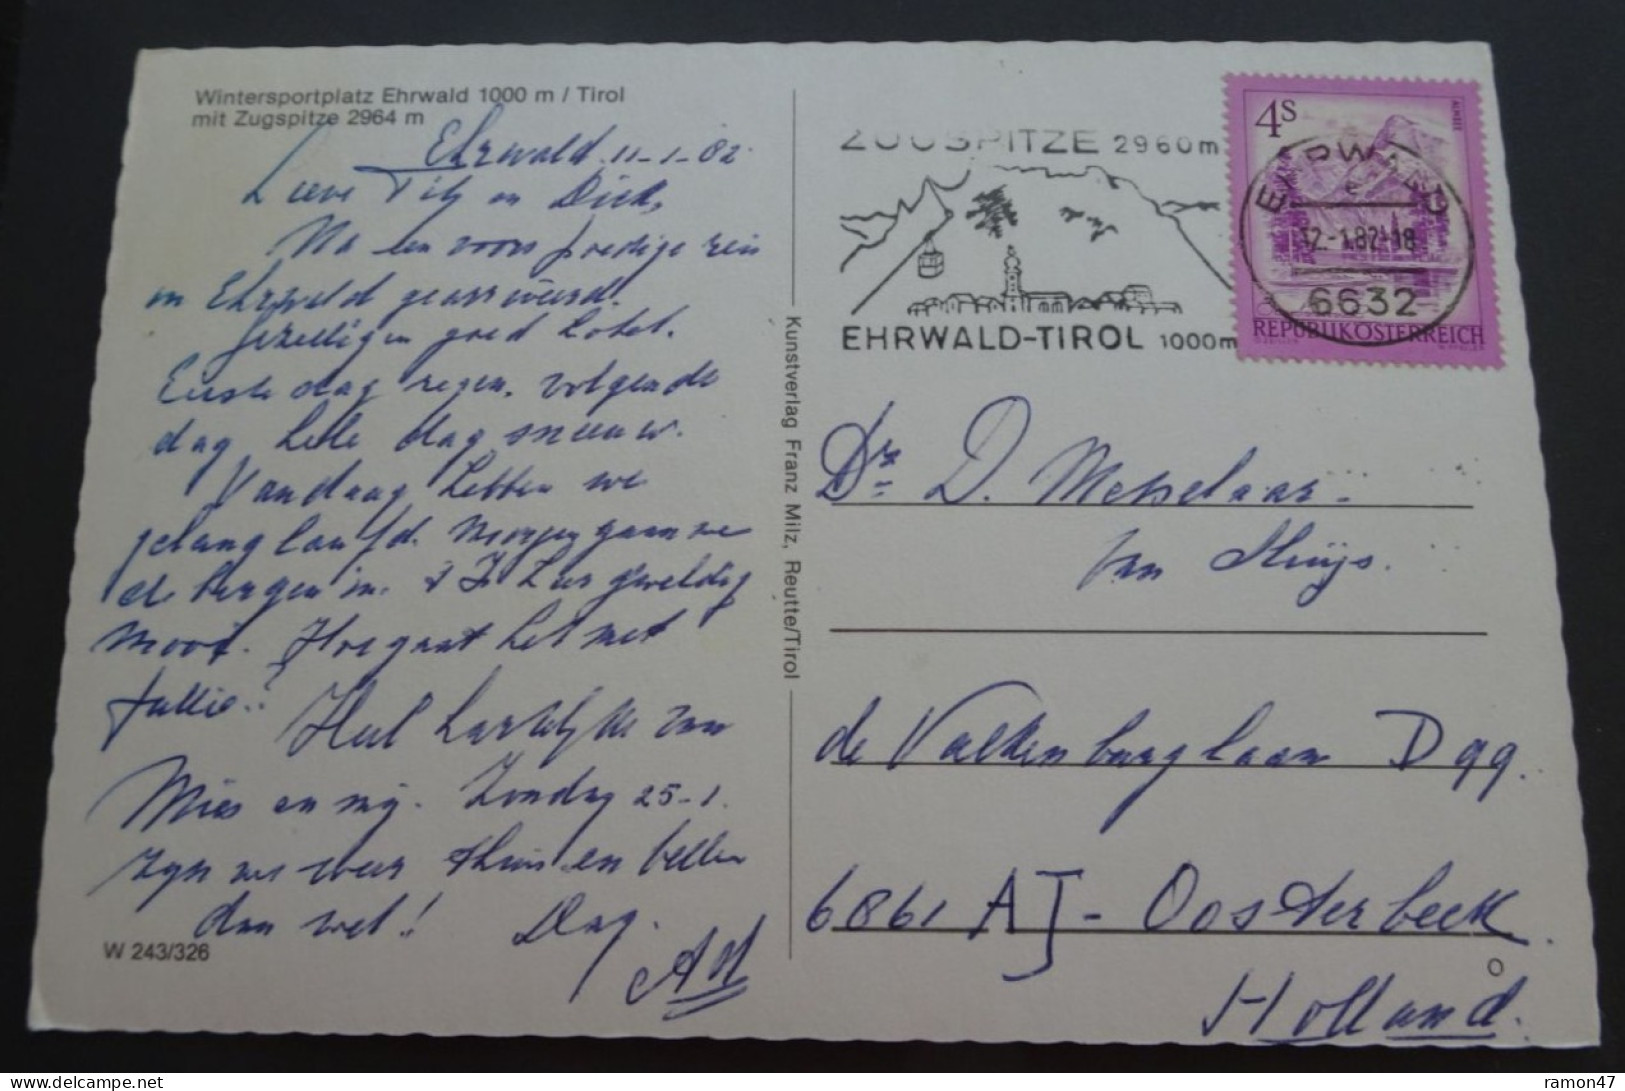 Wintersportplatz Ehrwald 1000 m / Tirol
mit Zugspitze 2964 m
Ehrwald 11-1-82
Lieve en Dick,
Na een voorspoedige reis
in Ehrwald gearriveerd.
Gezellig en goed hotel.
Eerste dag regen, volgende
dag hele dag sneeuw.
Vandaag hebben we
gelanglaufd. Morgen gaan we
de bergen in. 't Is hier geweldig
mooi. Hoe gaat het met
jullie?
Heel hartelijks van
Mies en mij. Zondag 25-1
zijn we weer thuis en bellen
dan wel! Dag.
Ad
W 243/326
Kunstverlag Franz Milz, Reutte/Tirol
ZUGSPITZE 2960m
EHRWALD-TIROL 1000m
4S
ALMSEE
EHRWALD
12.-1.82-18
6632
REPUBLIK ÖSTERREICH
Dr. D. Metselaar-
van Huijs.
de Valkenburglaan D 99.
6861 AJ - Oosterbeek.
Holland.
ramon47